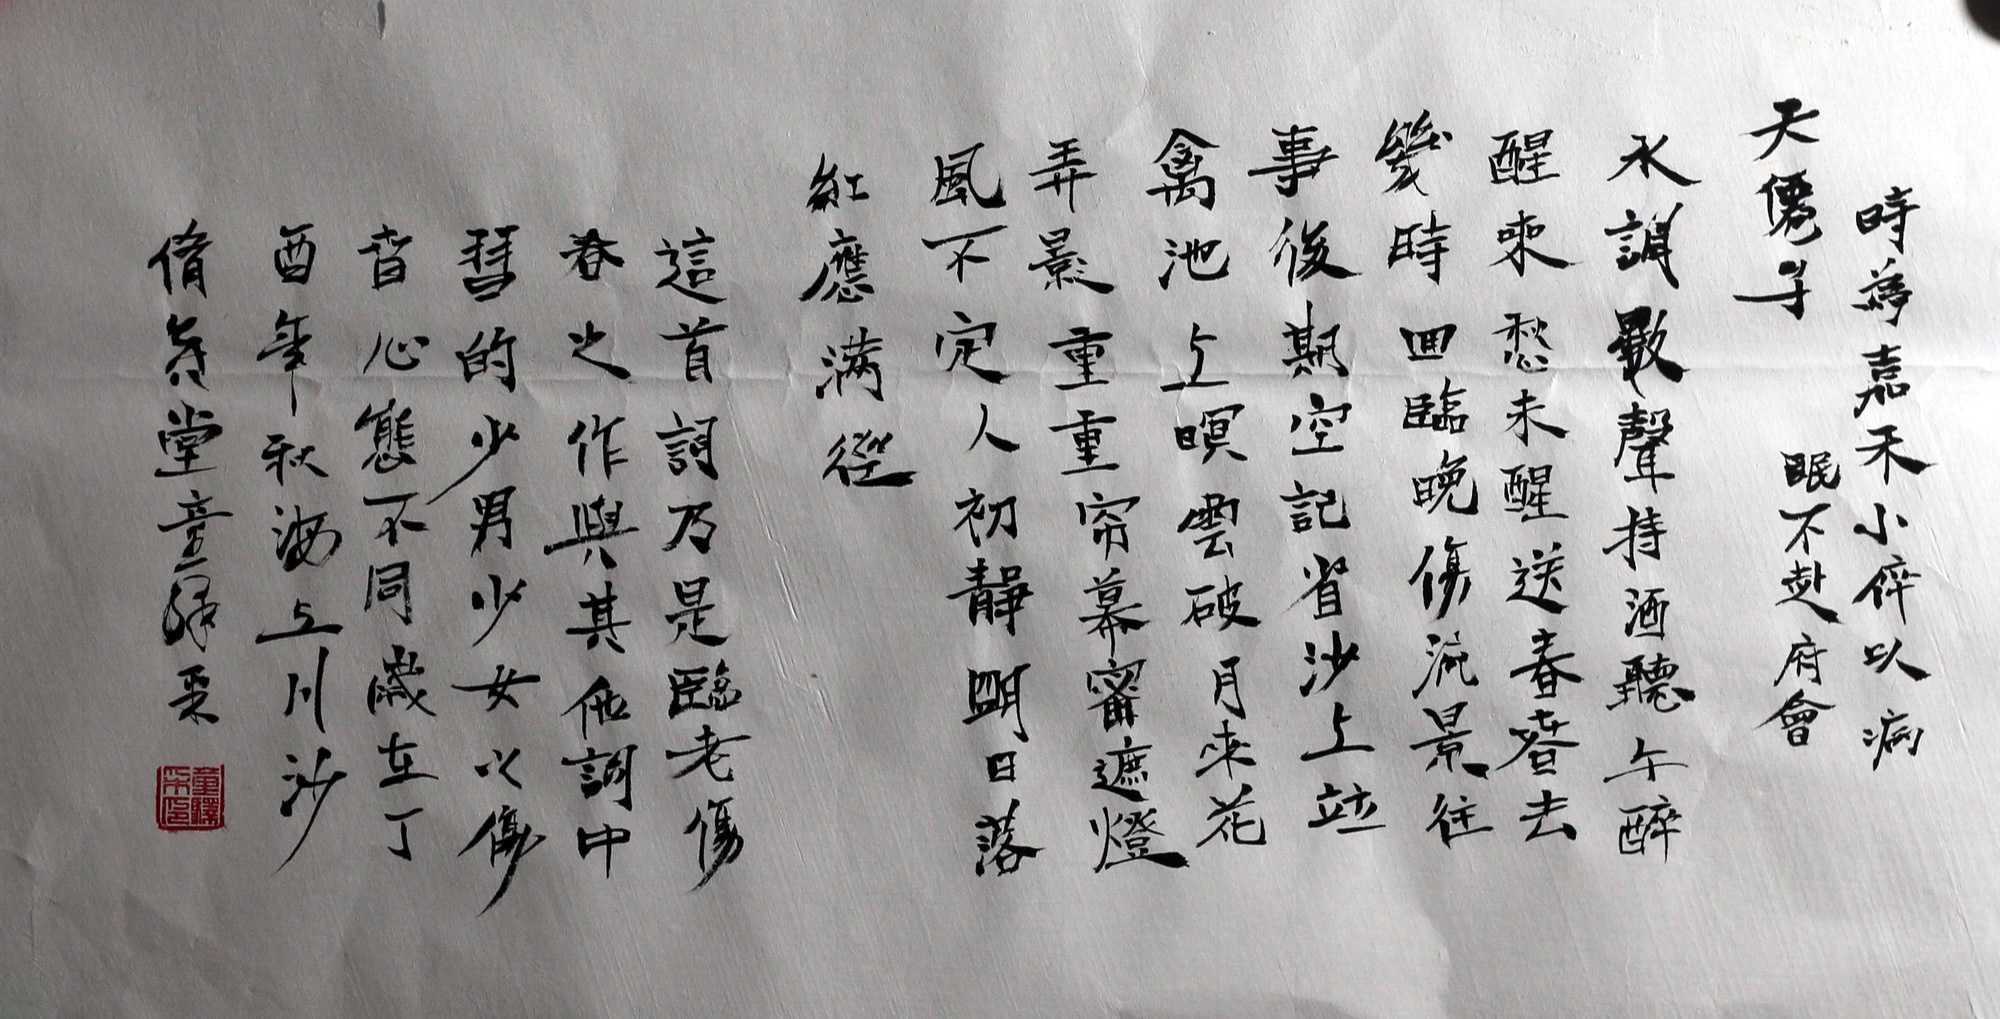 時為嘉禾小倅以病
眠不赴府會
天僊子
水調數聲持酒聽午醉
醒來愁未醒送春春去
幾時回臨晚傷流景往
事後期空記省沙上竝
禽池上暝雲破月來花
弄影重重帘幕密遮燈
風不定人初靜明日落
紅應满徑
這首詞乃是臨老傷
春之作與其他詞中
的少男少女以傷
春心態不同歲在丁
酉年秋海上川沙
堂童繹采
童繹采印